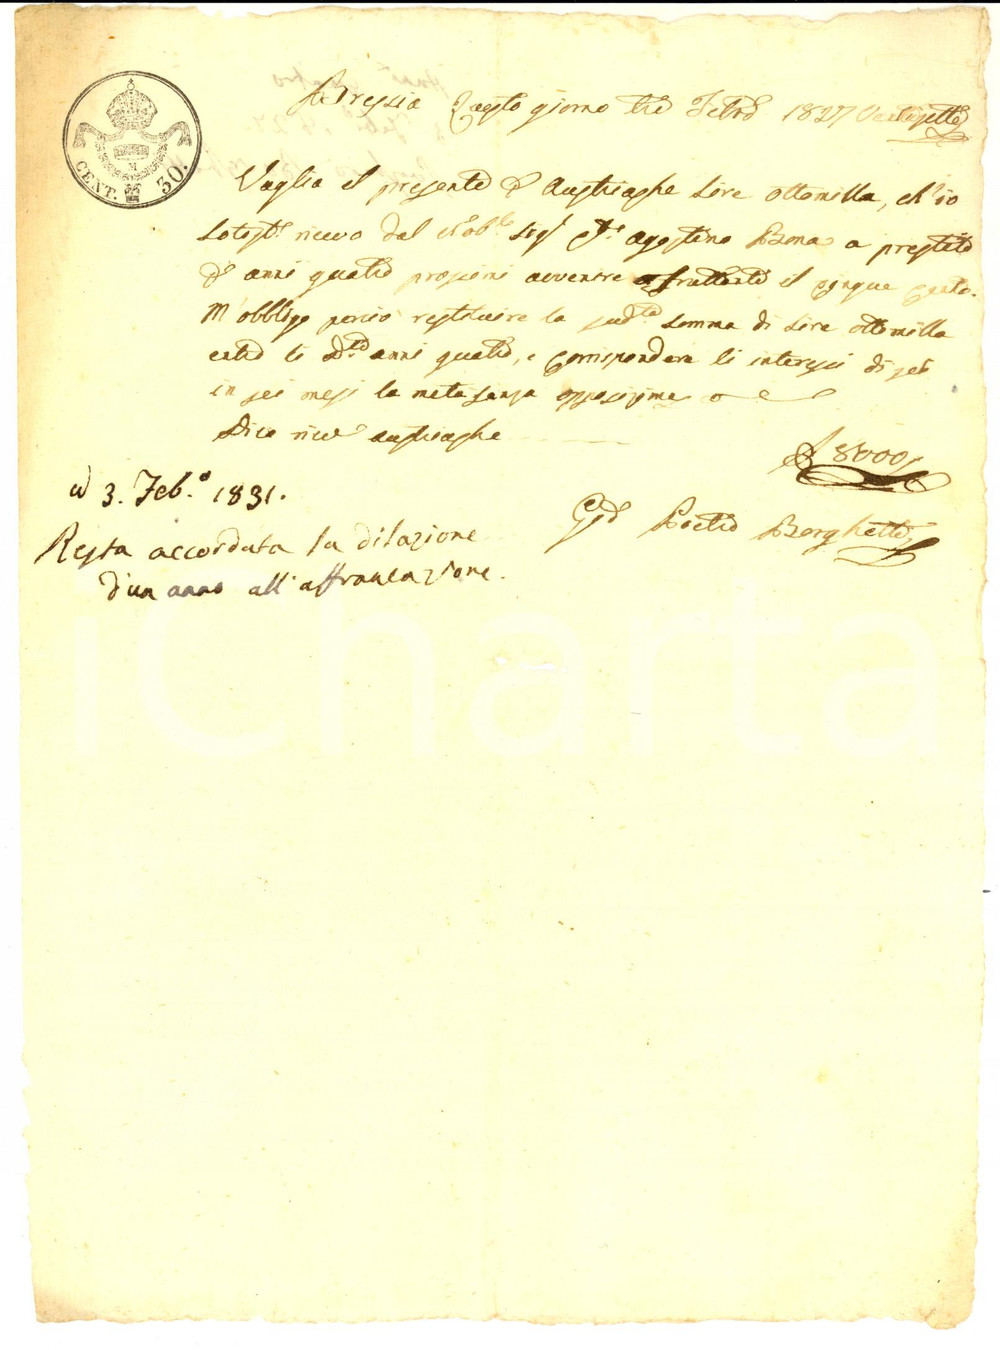 Brescia questo giorno tre Febro 1827 Ventisette
Vaglia il presente p Austriache Lire ottomilla, ch'io
sottos.to ricevo dal Nob.le Sig.r Agostino Bona a prestito
p anni quatro prossimi avvenire fruttante il cinque p cento.
M'obbligo perciò restituire la sud.ta somma di Lire ottomilla
entro li d.ti anni quatro, e corrispondere li interessi di sei
in sei mesi la metà senza opposizione
Dico ricev Austriache
£ 8000
CENT. 30.
Pietro Borghetti
3. Feb.o 1831.
Resta accordata la dilazione
d'un anno all'affrancazione.
iCharta